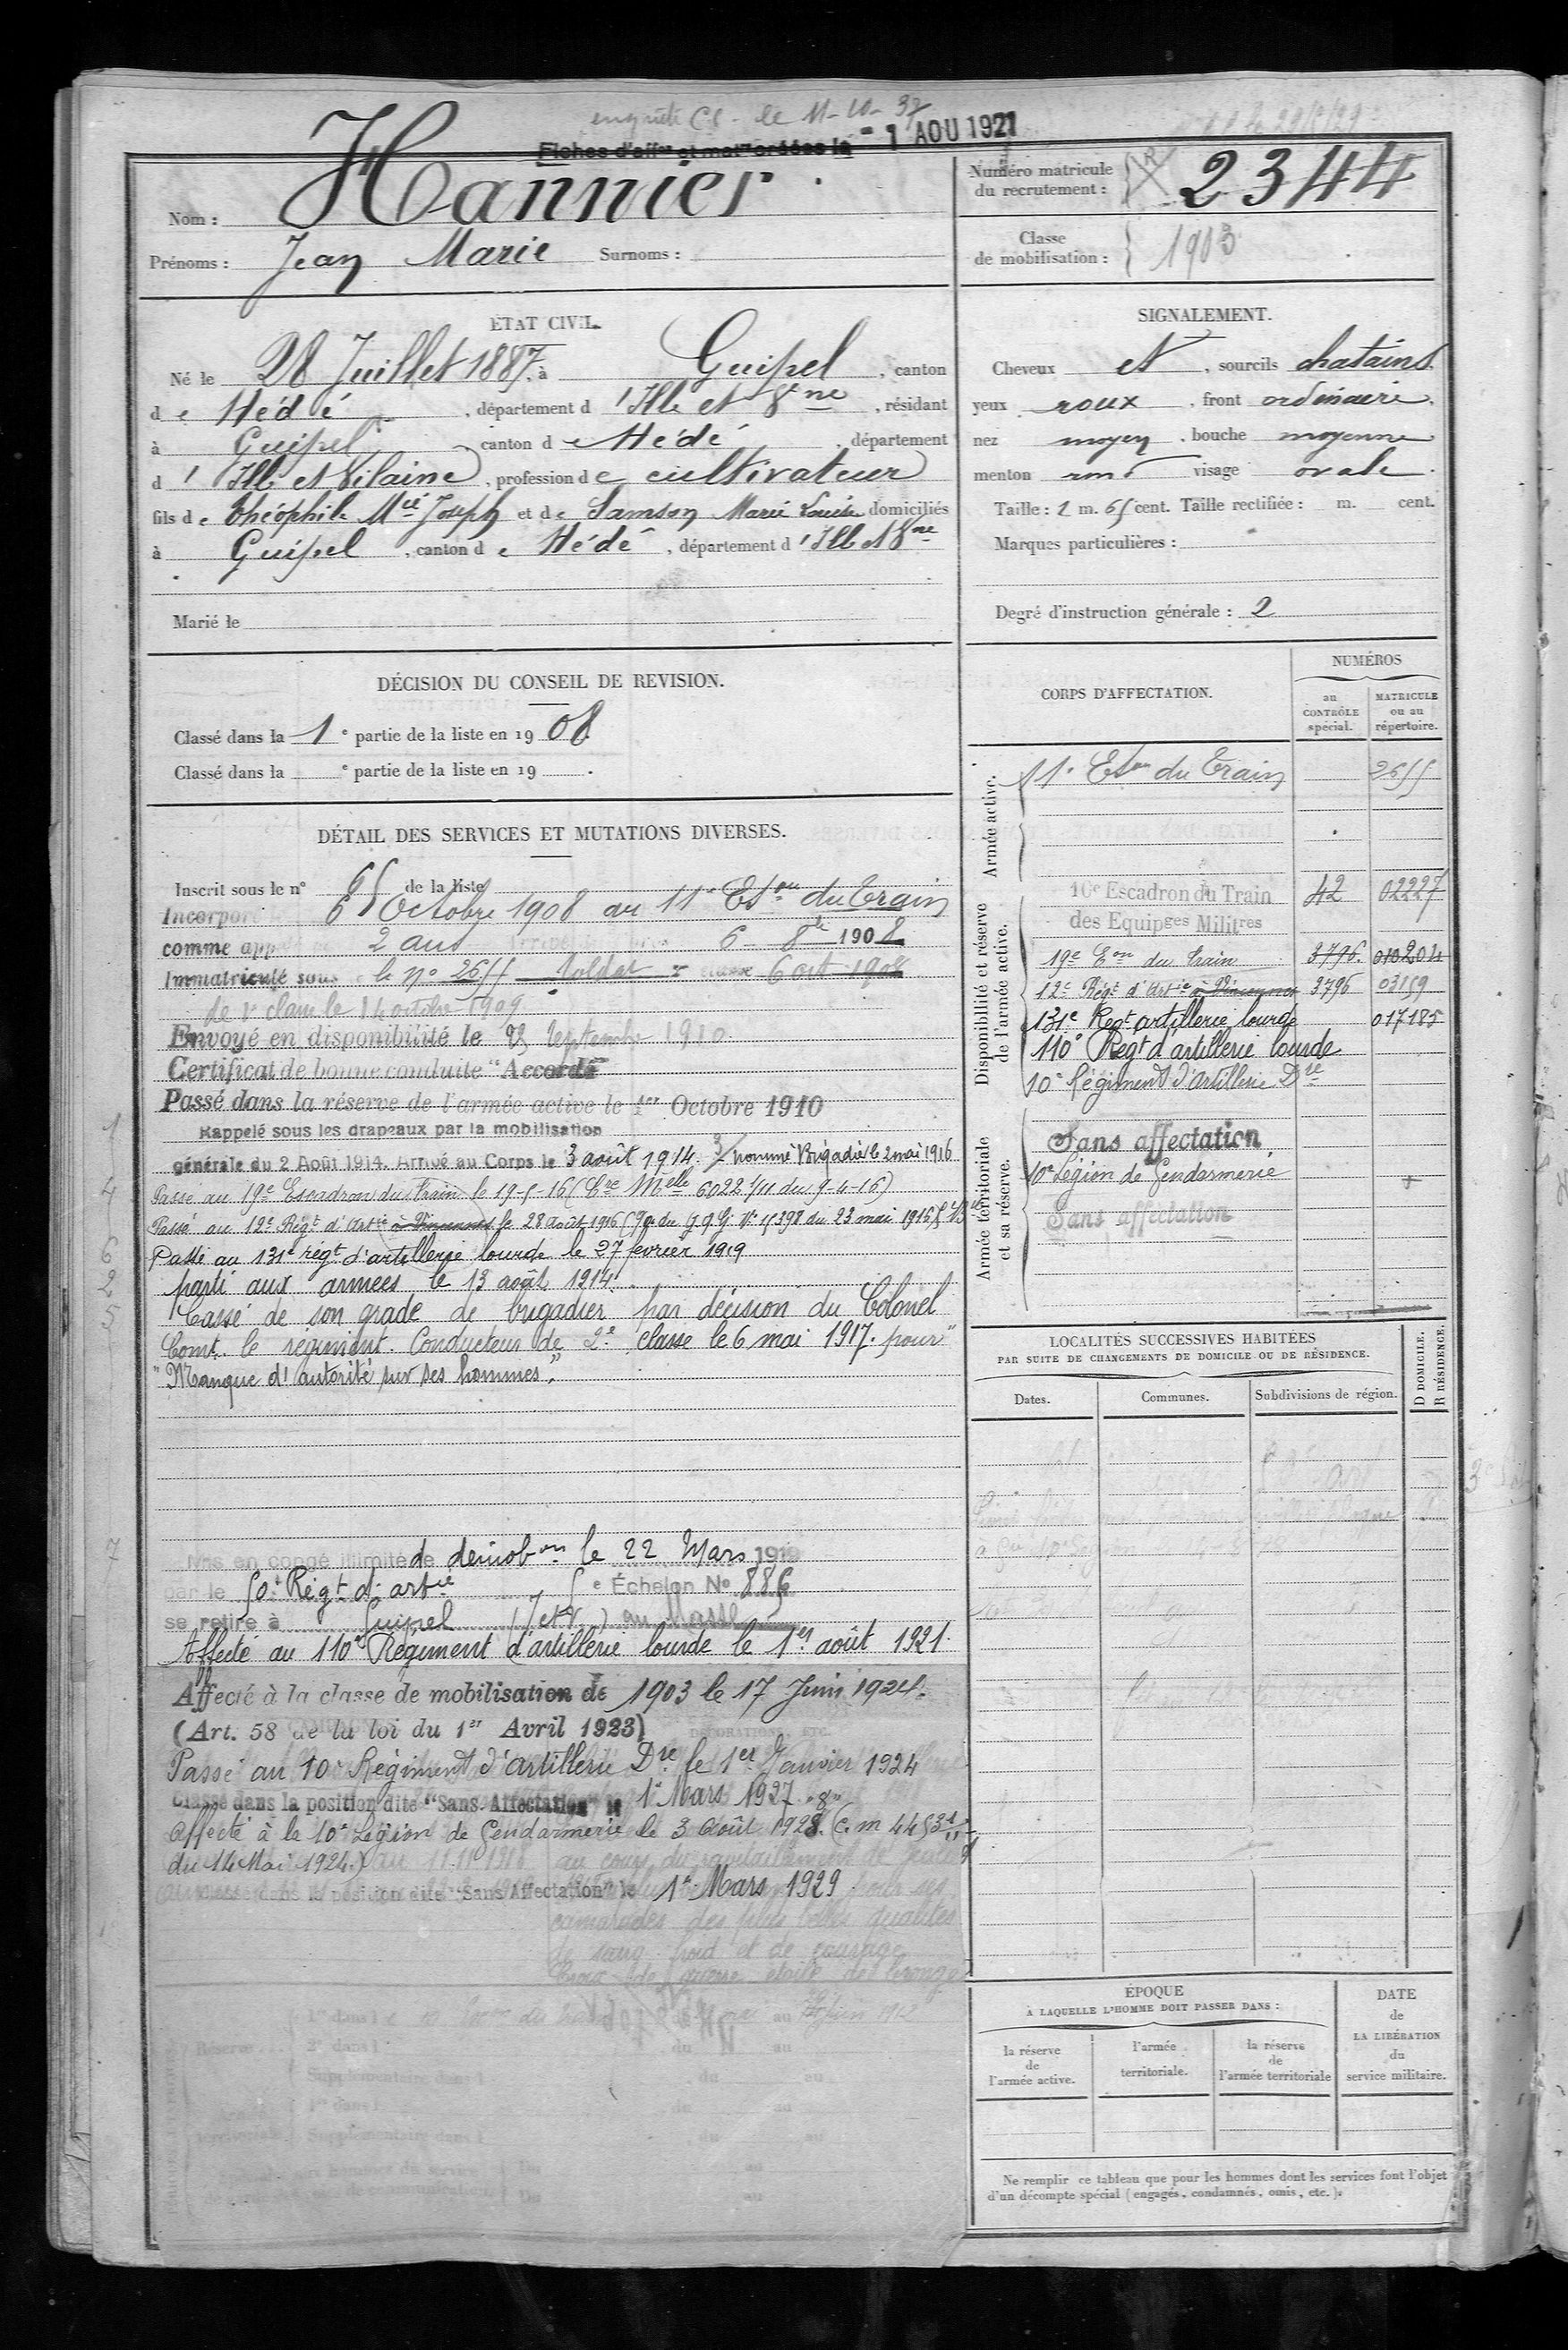 enquête C.C. le 11-10-37
Fiches d'aff<sup>on</sup> et mat<sup>les</sup> créées le - 1 AOU 1921
Nom : Hannier
Prénoms : Jean Marie Surnoms :
Numéro matricule du recrutement : 2344
Classe de mobilisation : 1903
ÉTAT CIVIL.
Né le 28 Juillet 1887, à Guipel, canton
de Hédé, département d'Ille et Vne, résidant
à Guipel, canton de Hédé, département
d'Ille et Vilaine, profession de cultivateur
fils de Théophile Mie Joseph et de Samson Marie Louise domiciliés
à Guipel, canton de Hédé, département d'Ille et Vne
Marié le
SIGNALEMENT.
Cheveux et, sourcils chatains,
yeux roux, front ordinaire,
nez moyen, bouche moyenne
menton rond visage ovale.
Taille : 1 m. 65 cent. Taille rectifiée : m. cent.
Marques particulières :
Degré d'instruction générale : 2
DÉCISION DU CONSEIL DE REVISION.
Classé dans la 1e partie de la liste en 1908
Classé dans la e partie de la liste en 19 .
DÉTAIL DES SERVICES ET MUTATIONS DIVERSES.
Inscrit sous le n° 65 de la liste
Incorporé 6 Octobre 1908 au 11e Eson du Train
comme app 2 ans 6 8bre 1908
Immatriculé sous le n° 2655 Soldat 2e classe 6 oct 1908
de 1e classe le 14 octobre 1909
Envoyé en disponibilité le 25 Septembre 1910
Certificat de bonne conduite "Accordé"
Passé dans la réserve de l'armée active le 1er Octobre 1910
Rappelé sous les drapeaux par la mobilisation
générale du 2 Août 1914. Arrivé au Corps le 3 août 1914. 3/ nommé Brigadier le 2 mai 1916
1
4
Passé au 19e Escadron du Train le 19-5-16 (Cre Melle 6022 1/11 du 9-4-16)
Passé au 12e Régt d'Artie à Vincennes le 28 août 1916 (du G.Q.G. N° 15398 du 23 mai 1916
6
Passé au 131e régt d'artillerie lourde le 27 février 1919
2
parti aux armées le 13 août 1914.
5
Cassé de son grade de brigadier par décision du Colonel
Comt le régiment. Conducteur de 2e classe le 6 mai 1917. pour
"Manque d'autorité sur ses hommes".
7
Mis en congé illimité de démobon le 22 Mars 1919
par le 50e Régt d'artie 5e Échelon No 886
se retire à Guipel (I et V)
Affecté au 110e Régiment d'artillerie lourde le 1er août 1921.
Affecté à la classe de mobilisation de 1903 le 17 Juin 1924.
(Art. 58 de la loi du 1er Avril 1923)
Passé au 10e Régiment d'artillerie Dre le 1er Janvier 1924
Classé dans la position dite "Sans Affectation" le 1er Mars 1927. "8"
Affecté à la 10e Légion de Gendarmerie le 3 Août 1928. (C. m 4453
du 14 Mai 1924.)
Classé dans la position dite "Sans Affectation" le 1er Mars 1929
camarades des plus belles qualités
de sang froid et de courage
Croix de guerre étoile de bronze
CORPS D'AFFECTATION.
NUMÉROS
au CONTRÔLE spécial.
MATRICULE ou au répertoire.
Armée active.
11e Eson du Train 2655
Disponibilité et réserve de l'armée active.
10e Escadron du Train 42 02227
des Equipges Militres
19e Eon du Train 3796. 010204
12e Régt d'Artie à Vincennes 3796 03159
131e Regt artillerie lourde 017185
110e Régt d'artillerie lourde
10e Régiment d'artillerie Dre
Armée territoriale et sa réserve.
Sans affectation
10e Légion de Gendarmerie
Sans affectation
LOCALITÉS SUCCESSIVES HABITÉES
PAR SUITE DE CHANGEMENTS DE DOMICILE OU DE RÉSIDENCE.
Dates. Communes. Subdivisions de région.
D DOMICILE. R RÉSIDENCE.
ÉPOQUE
À LAQUELLE L'HOMME DOIT PASSER DANS :
la réserve de l'armée active.
l'armée territoriale.
la réserve de l'armée territoriale
DATE de LA LIBÉRATION du service militaire.
Ne remplir ce tableau que pour les hommes dont les services font l'objet
d'un décompte spécial (engagés, condamnés, omis, etc.).